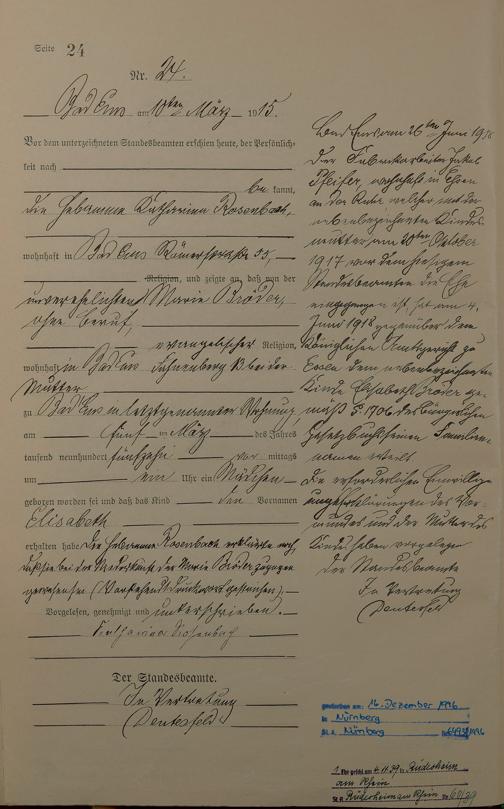 Seite 24
Nr. 24.
Bad Ems am 10ten März 1915.
Vor dem unterzeichneten Standesbeamten erschien heute, der Persönlich-
keit nach
bekannt,
die Hebamme Katharina Rosenbach,
wohnhaft in Bad Ems Römerstraße 55,
Religion, und zeigte an, daß von der
unverehelichten Marie Bröder,
ohne Beruf,
evangelischer Religion,
wohnhaft in Bad Ems 13 bei der
Mutter
zu Bad Ems in letztgenannter Wohnung
am fünf ten März des Jahres
tausend neunhundert fünfzehn vor mittags
um ein Uhr ein Mädchen
geboren worden sei und daß das Kind den Vornamen
Elisabeth
erhalten habe. Die Hebamme Rosenbach erklärte noch,
daß sie bei der Niederkunft der Marie Bröder zugegen
gewesen sei. (Vorstehend Druckwort gestrichen).
Vorgelesen, genehmigt und unterschrieben.
Katharina Rosenbach
Der Standesbeamte.
In Vertretung
Bad Ems am 26ten Juni 1918
Der Fabrikarbeiter Jakob
Pfeifer, wohnhaft in Essen
an der Ruhr, welcher mit der
nebenbezeichneten Kindes-
mutter am 20ten Oktober
1917 vor dem hiesigen
Standesbeamten die Ehe
eingegangen ist, hat am 4.
Juni 1918 gegenüber dem
Königlichen Amtsgericht zu
Essen dem nebenbezeichneten
Kinde Elisabeth Bröder ge-
mäß § 1706 des Bürgerlichen
Gesetzbuchs seinen Familien-
namen erteilt.
Die erforderlichen Einwilli-
gungserklärungen des Vor-
mundes und der Mutter des
Kindes haben vorgelegen.
Der Standesbeamte
In Vertretung
gestorben am: 16. Dezember 1996
in Nürnberg
St. A. Nürnberg
1. Ehe geschl. am 4.11.39 in Rüdesheim
am Rhein
St. A. Rüdesheim am Rhein